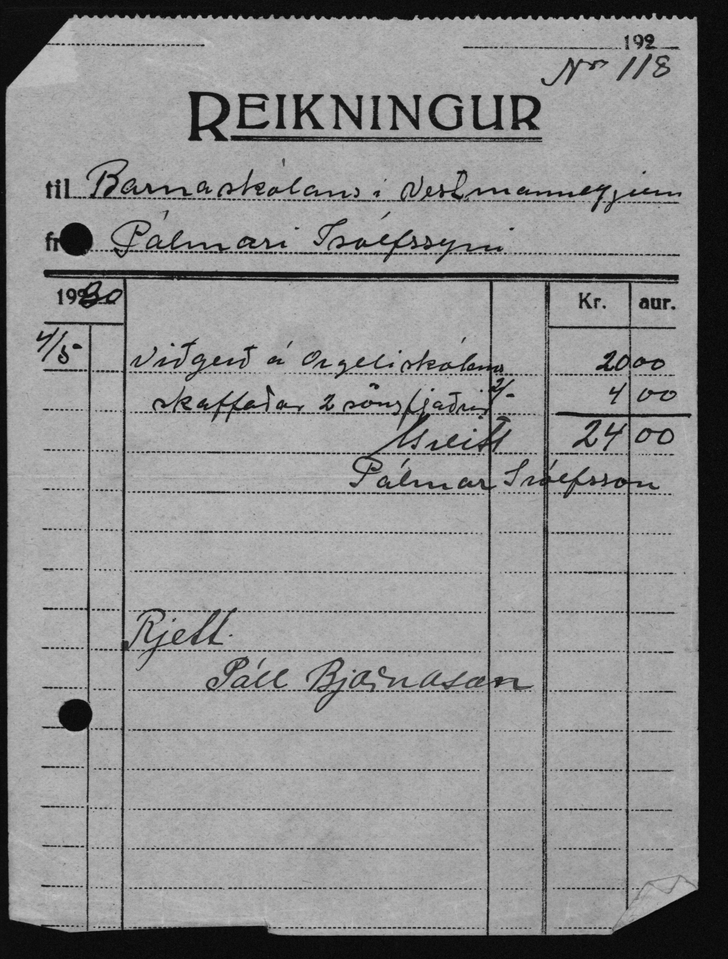 192
No 118
REIKNINGUR
til Barnaskólans í Vestmannaeyjum
frá Pálmari Ísólfssyni
1930 Kr. aur.
4/5 Viðgerð á Orgeli skólans 20 00
skaffaðar 2 söngfjaðrir 2/- 4 00
Greitt 24 00
Pálmar Ísólfsson
Rjett.
Páll Bjarnason